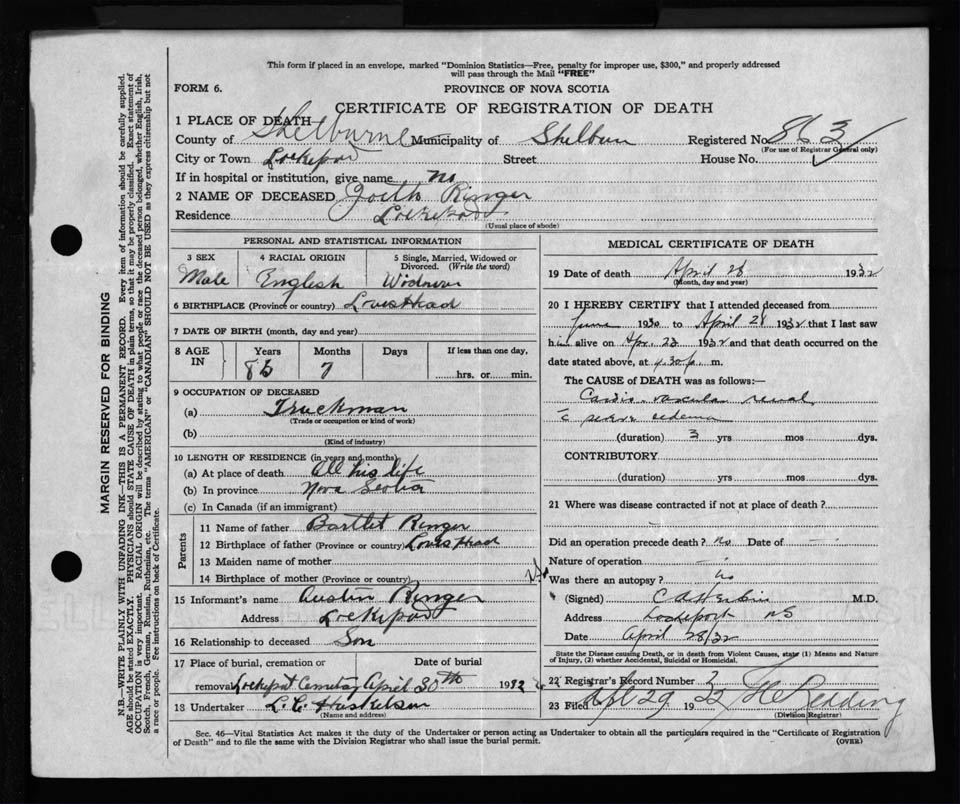 This form if placed in an envelope, marked "Dominion Statistics—Free, penalty for improper use, $300," and properly addressed
will pass through the Mail "FREE"
FORM 6.
PROVINCE OF NOVA SCOTIA
CERTIFICATE OF REGISTRATION OF DEATH
1 PLACE OF DEATH
County of Shelburne Municipality of Shelburn Registered No. 863
(For use of Registrar General only)
City or Town Lockeport Street House No.
If in hospital or institution, give name no
2 NAME OF DECEASED Ringer
Residence Lockeport
(Usual place of abode)
PERSONAL AND STATISTICAL INFORMATION
3 SEX 4 RACIAL ORIGIN 5 Single, Married, Widowed or
Divorced. (Write the word)
Male English Widower
6 BIRTHPLACE (Province or country) Louis Head
7 DATE OF BIRTH (month, day and year)
8 AGE IN Years Months Days If less than one day,
7 hrs. or min.
9 OCCUPATION OF DECEASED
(a) Truckman
(Trade or occupation or kind of work)
(b)
(Kind of industry)
10 LENGTH OF RESIDENCE (in years and months)
(a) At place of death all his life
(b) In province Nova Scotia
(c) In Canada (if an immigrant)
Parents
11 Name of father Bartlet Ringer
12 Birthplace of father (Province or country) Louis Head
13 Maiden name of mother
14 Birthplace of mother (Province or country)
15 Informant's name Austin Ringer
Address Lockeport
16 Relationship to deceased Son
17 Place of burial, cremation or Date of burial
removal Lockeport Cemetery April 30th 1932
18 Undertaker L. C.
(Name and address)
MEDICAL CERTIFICATE OF DEATH
19 Date of death April 28 1932
(Month, day and year)
20 I HEREBY CERTIFY that I attended deceased from
June 1930 to April 28 1932 that I last saw
him alive on Apr. 1932 and that death occurred on the
date stated above, at 4.30 p. m.
The CAUSE of DEATH was as follows:—
Cardio-vascular renal
c̄ severe oedema
(duration) 3 yrs mos dys.
CONTRIBUTORY
(duration) yrs mos dys.
21 Where was disease contracted if not at place of death?
Did an operation precede death? no Date of —
Nature of operation —
Was there an autopsy? no
(Signed) C A Herbin M.D.
Address Lockeport NS
Date April 28/32
State the Disease causing Death, or in death from Violent Causes, state (1) Means and Nature
of Injury, (2) whether Accidental, Suicidal or Homicidal.
22 Registrar's Record Number
23 Filed Apl 29 1932 Redding
(Division Registrar)
Sec. 46—Vital Statistics Act makes it the duty of the Undertaker or person acting as Undertaker to obtain all the particulars required in the "Certificate of Registration
of Death" and to file the same with the Division Registrar who shall issue the burial permit.
(OVER)
MARGIN RESERVED FOR BINDING
N.B.—WRITE PLAINLY WITH UNFADING INK—THIS IS A PERMANENT RECORD. Every item of information should be carefully supplied.
AGE should be stated EXACTLY. PHYSICIANS should STATE CAUSE OF DEATH in plain terms, so that it may be properly classified. Exact statement of
OCCUPATION is very important. RACIAL ORIGIN will be described by stating to what people or race the deceased person belonged, whether English, Irish,
Scotch, French, German, Russian, Ruthenian, etc. The terms "AMERICAN" or "CANADIAN" SHOULD NOT BE USED as they express citizenship but not
a race or people. Fee instructions on back of Certificate.